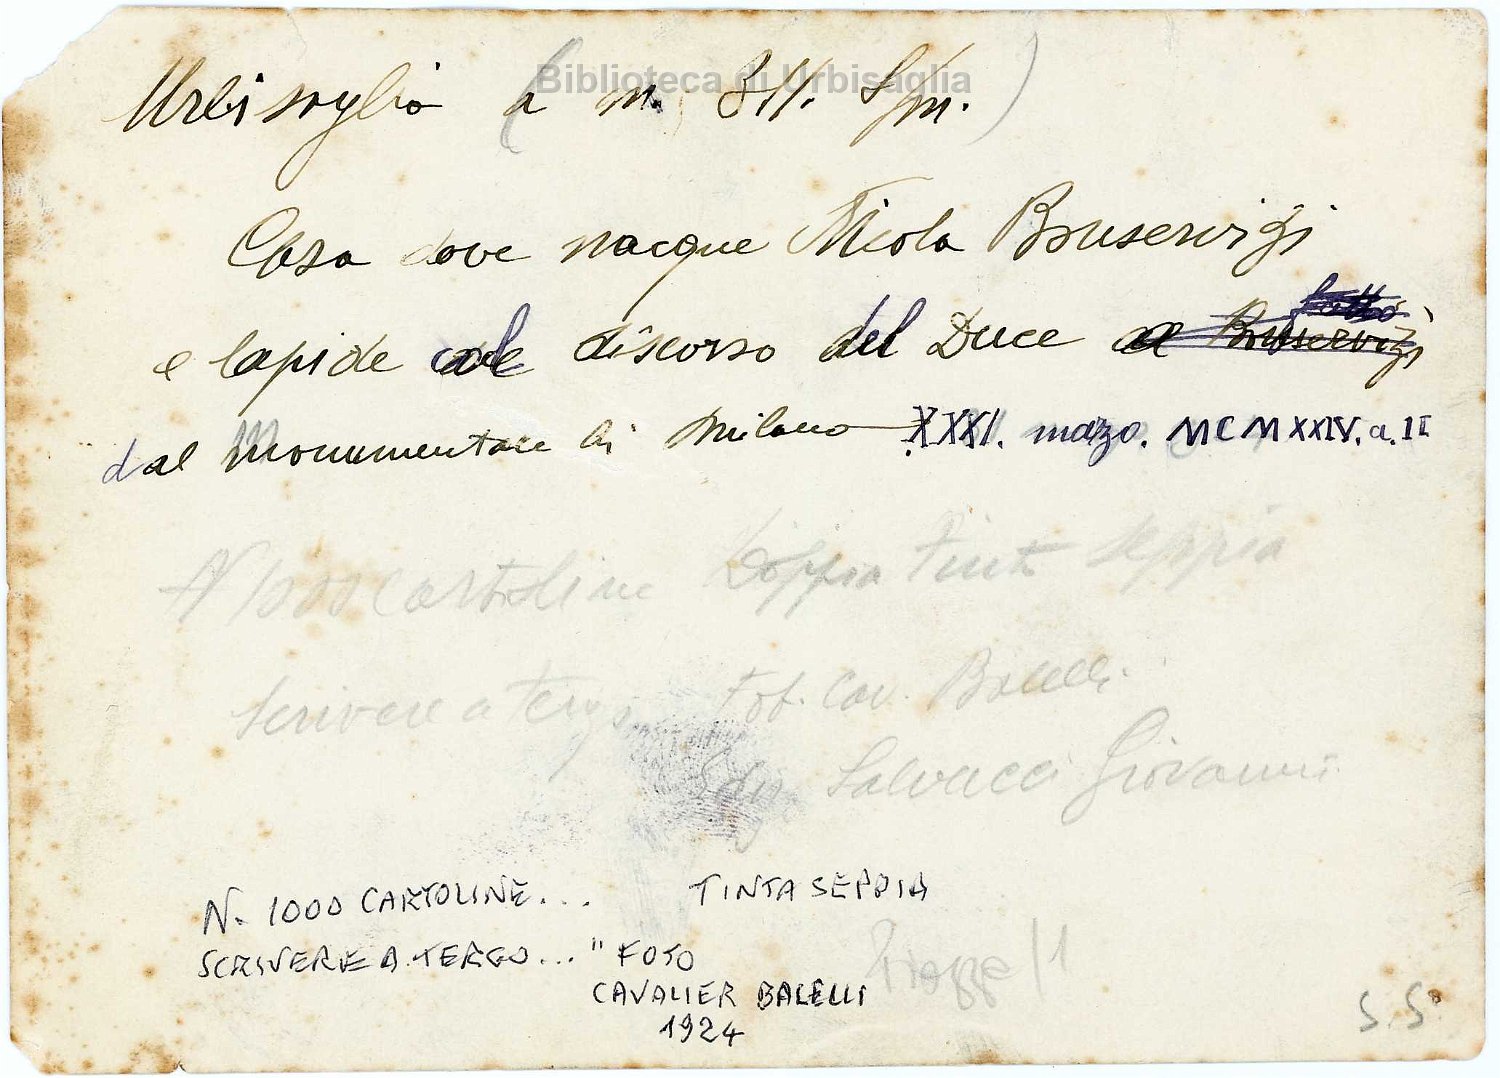 Biblioteca di Urbisaglia
Urbisaglia (a m. 311. s/m.)
Casa dove nacque Nicola Bonservizi
e lapide col discorso del Duce a Bonservizi fatto
dal Monumentale di Milano XXXI. marzo. MCMXXIV. a. II
N 1000 cartoline Doppia Tinta Seppia
Scrivere a tergo Fot. Cav. Balelli
Salvucci Giovanni
N. 1000 CARTOLINE... TINTA SEPPIA
SCRIVERE A TERGO... " FOTO
CAVALIER BALELLI
1924
S. S.